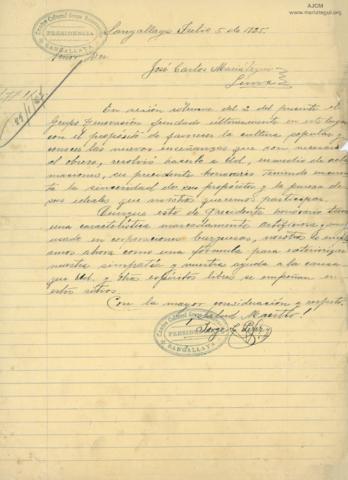 AJCM
www.mariategui.org
Centro Cultural Grupo Renovación
PRESIDENCIA
SANGALLAYA
Sangallaya Julio 5 de 1925.
Señor Don
José Carlos Mariátegui
Lima
En sesión última del 2 del presente el
Grupo Renovación fundado últimamente en este lugar
con el propósito de favorecer la cultura popular y
conocer las nuevas enseñanzas que son necesarias
al obrero, resolvió hacerlo a Ud, en medio de acla
maciones, su presidente honorario teniendo en cuen
ta la sinceridad de sus propósitos y la pureza de
sus ideales que nosotros queremos participar.
Aunque esto de Presidente honorario tiene
una característica marcadamente
usado en corporaciones burguesas, nosotros lo
amos ahora como una fórmula para exteriorizar
nuestra simpatía y nuestra ayuda a la causa
que Ud. y otros espíritus libres se empeñan en
estos
Con la mayor consideración y respeto.
Salud Maestro!
Jorge
Centro Cultural Grupo Renovación
PRESIDENCIA
SANGALLAYA